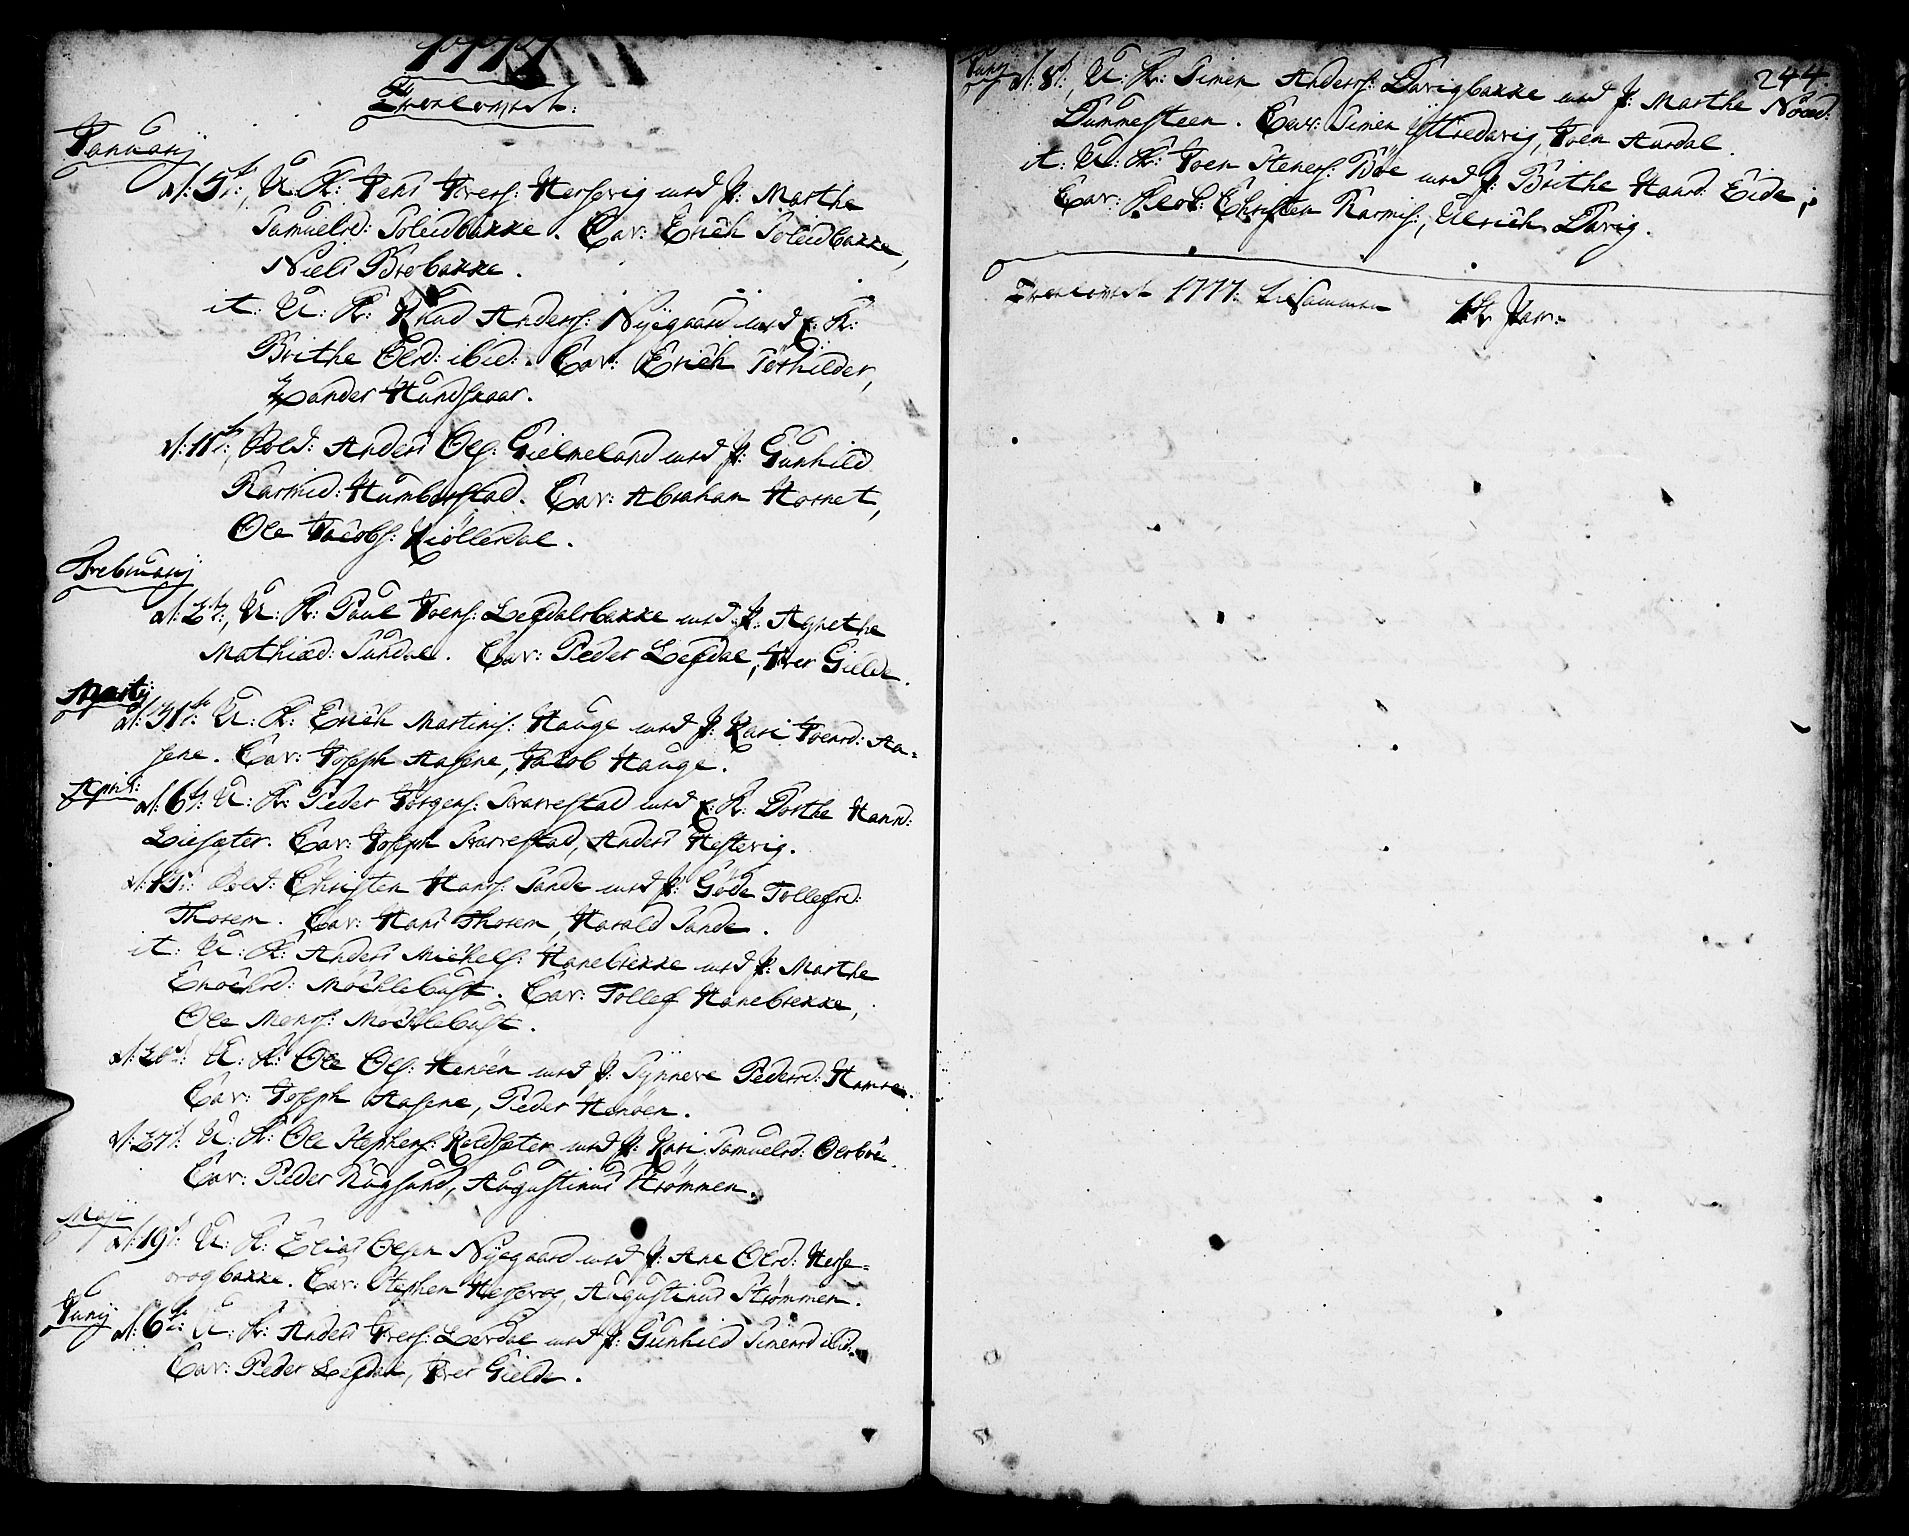 1777
Trolovet:
Januarij
d: 5t:, U: K: Jens Ivers: Hessevig med P: Marthe
Samuelsd: Soleidbakke. Cav: Erich Soleidbakke,
Niels Brobakke.
it: U: K: Knud Anders: Nÿegaard med E: K:
Brithe Olsd: ibid:. Cav: Erich Torhilder,
Lander Hundskaar.
d: 11t:, Sold: Anders Ols: Gielmeland med P: Gunhild
Rasmusd: Humborstad. Cav: Abraham Hornet,
Ole Jacobs: Kiöllerdal.
Februarij
d: 2t:, U: K: Paul Joens: Lefdalsbakke med P: Agnethe
Mathiæd: Sundal. Cav: Peder Lefdal, Iver Gielde.
Martij
d: 31t: U: K: Erich Martinis: Hauge med P: Kari Joensd: Aa-
sene. Cav: Joseph Aasene, Jacob Hauge.
April:
d: 6t: U: K: Peder Jörgens: Svarrestad med E: K: Dorthe Hansd:
Liesæter. Cav: Joseph Svarrestad, Anders Hestevig.
d: 13t: Sold: Christen Hans: Sande med P: Göde Tollefsd:
Thosem. Cav: Hans Thosem, Harald Sande.
it: U: K: Anders Michels: Hanebrekke med P: Marthe
Enochsd: Möchlebust. Cav: Tollef Hanebrekke,
Ole Mons: Möchlebust.
d: 20t: U: K: Ole Ols: Henöen med P: Sÿnneve Pedersd:
Cav: Joseph Aasene, Peder Henöen.
d: 27t: U: K: Ole Stephens: Koldsæter med P: Kari Samuelsd: Oerböe.
Cav: Peder Rugsund, Augustinus Strömmen.
Maji
d: 19t: U: K: Elias Olsen Nÿegaard med P: Ane Olsd: Hesse-
vogbakke. Cav: Stephen Hessevog, Augustinus Strömmen.
Junij
d: 6t: U: K: Anders Ivers: Levdal med P: Gunhild Simensd ibid:
Cav: Peder Lefdal, Iver Gielde.
244
Junij
d: 8t:, U: K: Simen Anders: Davigbakke med P: Marthe
Dummesteen. Cav: Simen Ÿttredavig, Joen Aardal.
it: U: K: Joen Steners: Böe med P: Brithe Hansd: Eide,
Cav: Christen Rasmus:, Ulrich Davig.
Trolovet 1777. tilsammen 14 Par: